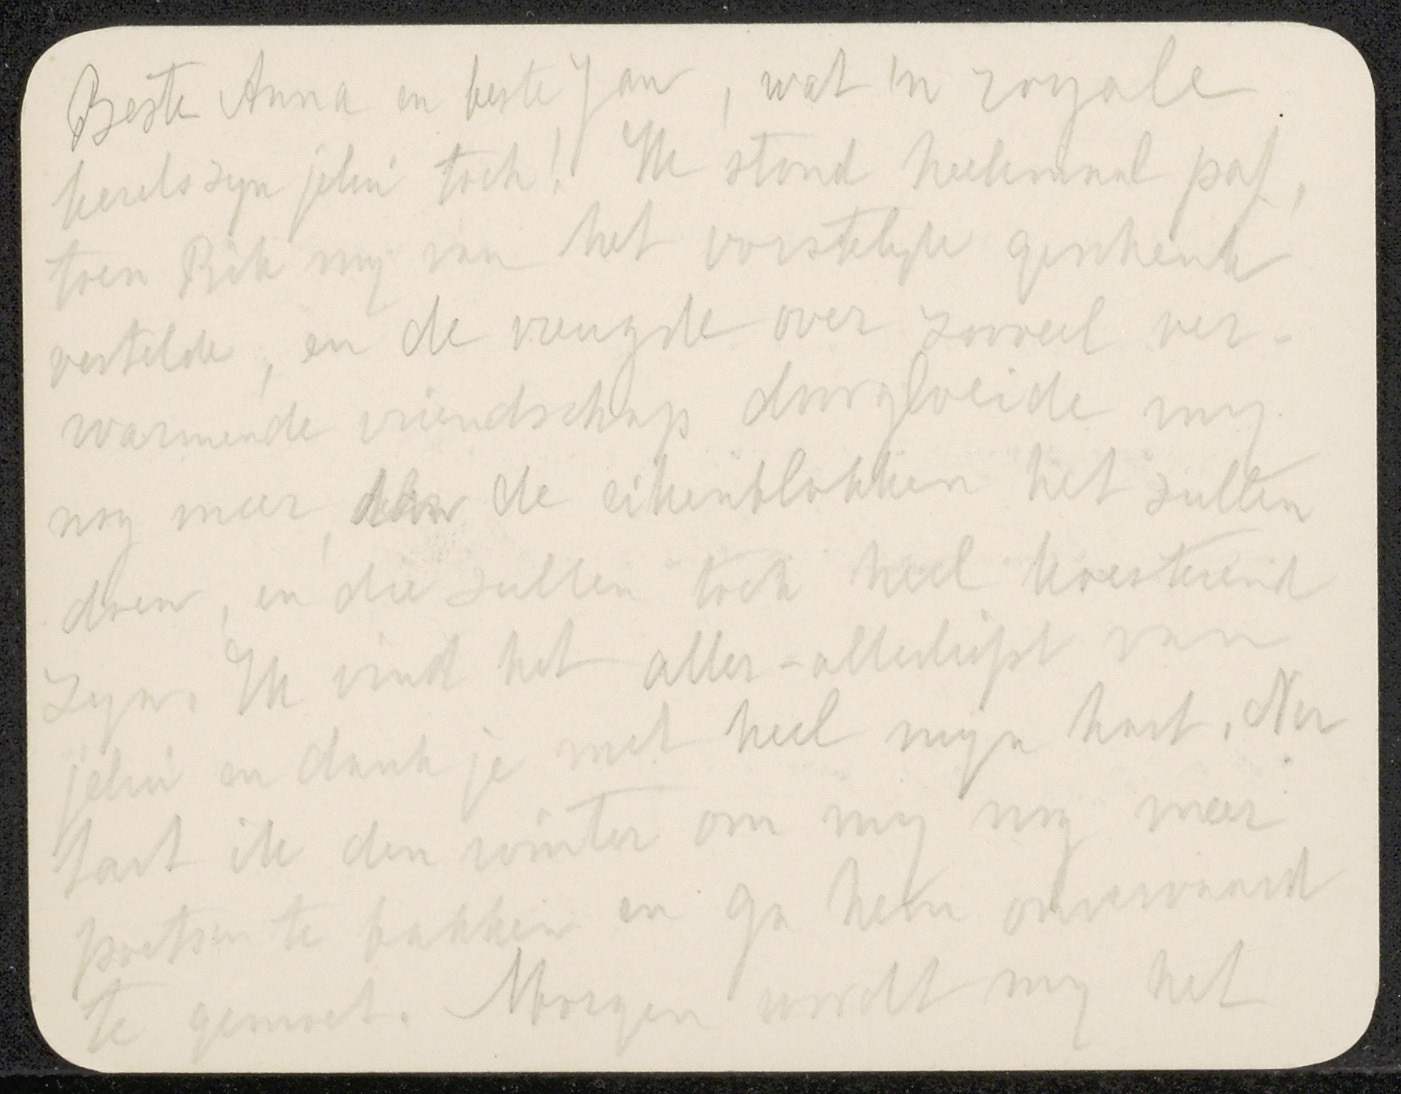 Beste Anna en beste Jan, wat 'n royale
kerels zyn jelui toch! Ik stond heelemaal paf,
toen Rik my van het vorstelyke geschenk
vertelde, en de vreugde over zooveel ver-
warmende vriendschap doorgloeide my
nog meer, dan de eikenblokken het zullen
doen, en die zullen toch heel koesterend
zyn. Ik vind het aller-allerliefst van
jelui en dank je met heel myn hart. Nu
tart ik den winter om my nog meer
poetsen te bakken en ga hem onvervaard
te gemoet. Morgen wordt my het